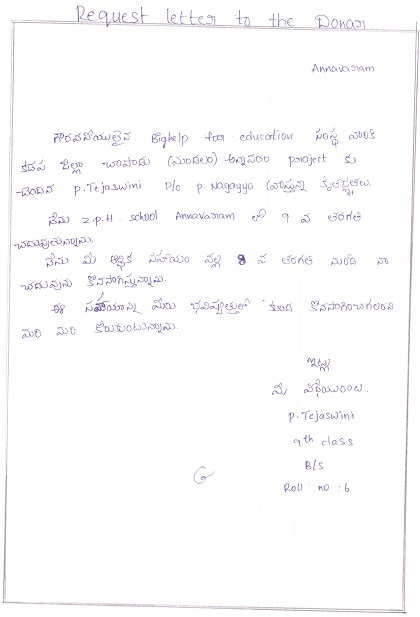 Request letter to the Donar
Annavaram
గౌరవనీయులైన Bighelp for education సంస్థ వారికి
కడప జిల్లా చాపాడు (మండలం) అన్నవరం project కు
చెందిన P.Tejaswini D/o P.Nagayya వ్రాస్తున్న కృతజ్ఞతలు.
నేను Z.P.H. school Annavaram లో 9 వ తరగతి
చదువుతున్నాను.
నేను మీ ఆర్థిక సహాయం వల్ల 8 వ తరగతి నుండి నా
చదువును కొనసాగిస్తున్నాను.
ఈ సహాయాన్ని మీరు భవిష్యత్తులో కుడ కొనసాగించగలరని
మరి మరి కోరుకుంటున్నాను.
ఇట్లు
మీ విధేయురాలు.
P.Tejaswini
9th class
B/S
Roll no : 6